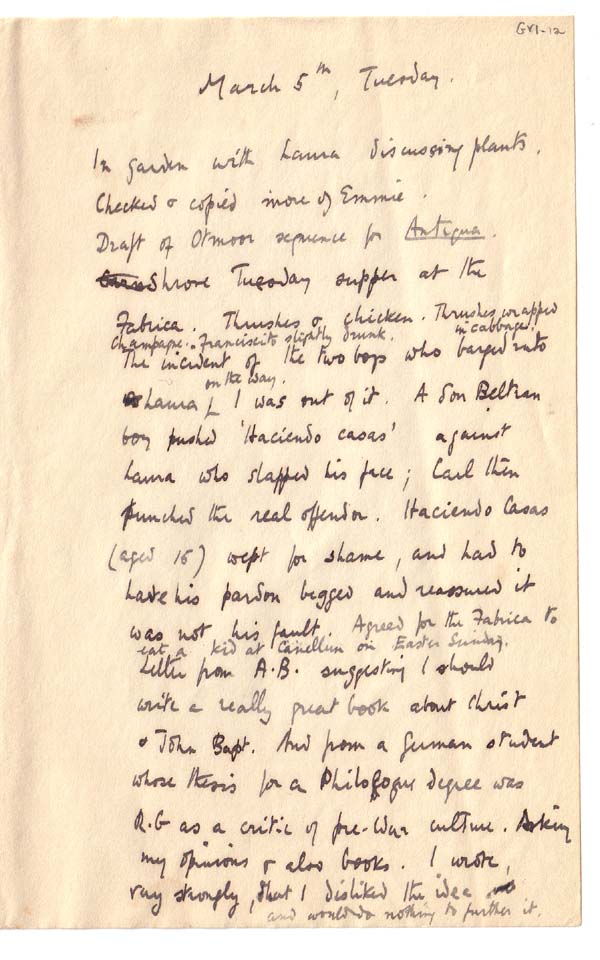 GVI-12
March 5th, Tuesday.
In garden with Laura discussing plants.
Checked & copied more of Emmie.
Draft of Otmoor sequence for Antigua.
Shrove Tuesday supper at the
Fabrica. Thrushes & chicken. Thrushes wrapped
in cabbage.
Champagne. Franciscito slightly drunk.
The incident of the two boys who barged into
on the way.
Laura I was out of it. A Son Beltran
boy pushed 'Haciendo casas' against
Laura who slapped his face; Carl then
punched the real offender. Haciendo Casas
(aged 16) wept for shame, and had to
have his pardon begged and reassured it
was not his fault. Agreed for the Fabrica to
eat a kid at Canellun on Easter Sunday.
Letter from A.B. suggesting I should
write a really great book about Christ
& John Bapt. And from a German student
whose thesis for a Philologue degree was
R.G as a critic of pre-War culture. Asking
my opinions & also books. I wrote,
very strongly, that I disliked the idea
and would do nothing to further it.